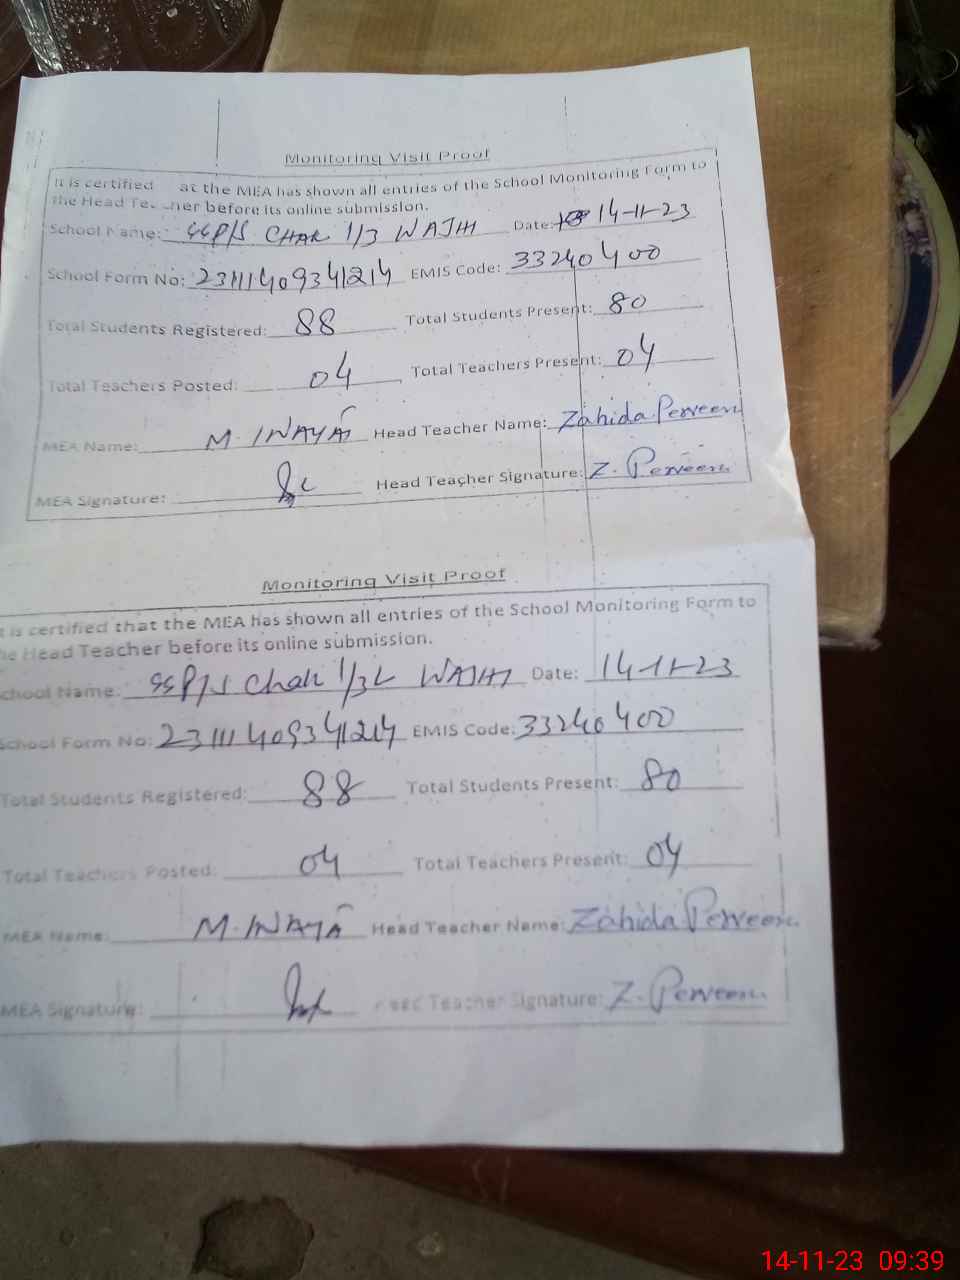 Monitoring Visit Proof
It is certified at the MEA has shown all entries of the School Monitoring Form to
the Head Teacher before its online submission.
School Name: GGP/S CHAK 1/3 WAJHI Date: 14-11-23
School Form No: 23111409341214 EMIS Code: 33240400
Total Students Registered: 88 Total Students Present: 80
Total Teachers Posted: 04 Total Teachers Present: 04
MEA Name: M. INAYAT Head Teacher Name: Zahida Perveen
MEA Signature: Head Teacher Signature: Z. Perveen
Monitoring Visit Proof
It is certified that the MEA has shown all entries of the School Monitoring Form to
he Head Teacher before its online submission.
School Name: GGP/S Chak 1/3L WAJHI Date: 14-11-23
School Form No: 23111409341214 EMIS Code: 33240400
Total Students Registered: 88 Total Students Present: 80
Total Teachers Posted: 04 Total Teachers Present: 04
MEA Name: M. INAYAT Head Teacher Name: Zahida Perveen
MEA Signature: Head Teacher Signature: Z. Perveen
14-11-23 09:39